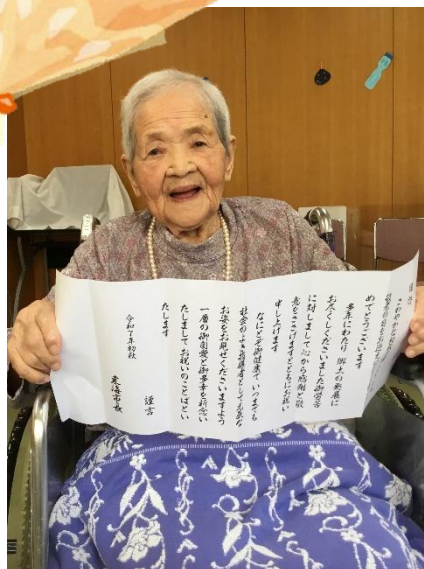 謹啓
めでとうございます
多年にわたり 郷土の発展に
お尽くしくださいました御労苦
に対しまして心から感謝と敬
意をささげますとともにお祝い
申し上げます
なにとぞ御健康で いつまでも
社会のよき指導者として元気な
お姿をお見せくださいますよう
一層の御自愛と御多幸を祈念い
たしまして お祝いのことばとい
たします
謹言
令和7年初秋
東海市長